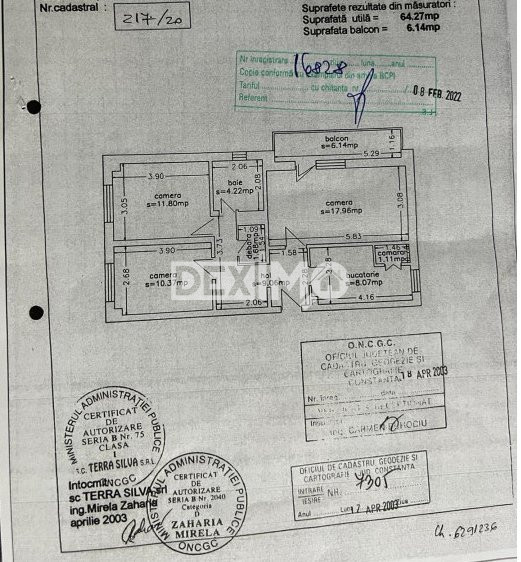 Nr.cadastral :
217/20
Suprafete rezultate din măsuratori :
Suprafată utilă = 64.27mp
Suprafata balcon = 6.14mp
Nr inregistrare 16828 luna anul
Copie conformă cu din arhiva BCPI
Tariful cu chitanta nr. / 08 FEB. 2022
Referent
balcon
s=6.14mp
1.16
5.29
3.90
camera
s=11.80mp
3.05
2.06
baie
s=4.22mp
2.08
camera
s=17.96mp
3.08
5.83
3.90
camera
s=10.37mp
2.68
3.73
1.09
debara
s=1.68mp
1.54
hol
s=9.06mp
2.06
1.58
1.46
camara
1.11mp
bucatarie
s=8.07mp
4.16
DEXIMO
O.N.C.G.C.
OFICIUL JUDETEAN DE
CADASTRU GEODEZIE SI
CARTOGRAFIE
CONSTANTA
18 APR 2003
Nr. înreg. data
ING. CARMEN
MINISTERUL ADMINISTRAŢIEI PUBLICE
CERTIFICAT
DE
AUTORIZARE
SERIA B Nr. 75
CLASA
I
S.C. TERRA SILVA S.R.L.
ONCGC
Intocmit
sc TERRA SILVA srl
ing.Mirela Zaharia
aprilie 2003
MINISTERUL ADMINISTRAŢIEI PUBLICE
CERTIFICAT
DE
AUTORIZARE
SERIA B Nr. 2040
Categoria
D
ZAHARIA
MIRELA
ONCGC
OFICIUL DE CADASTRU, GEODEZIE SI
CARTOGRAFIE JUD. CONSTANTA
INTRARE
IESIRE NR. 7305
Anul Luna 17 APR 2003
Ch. 6291236